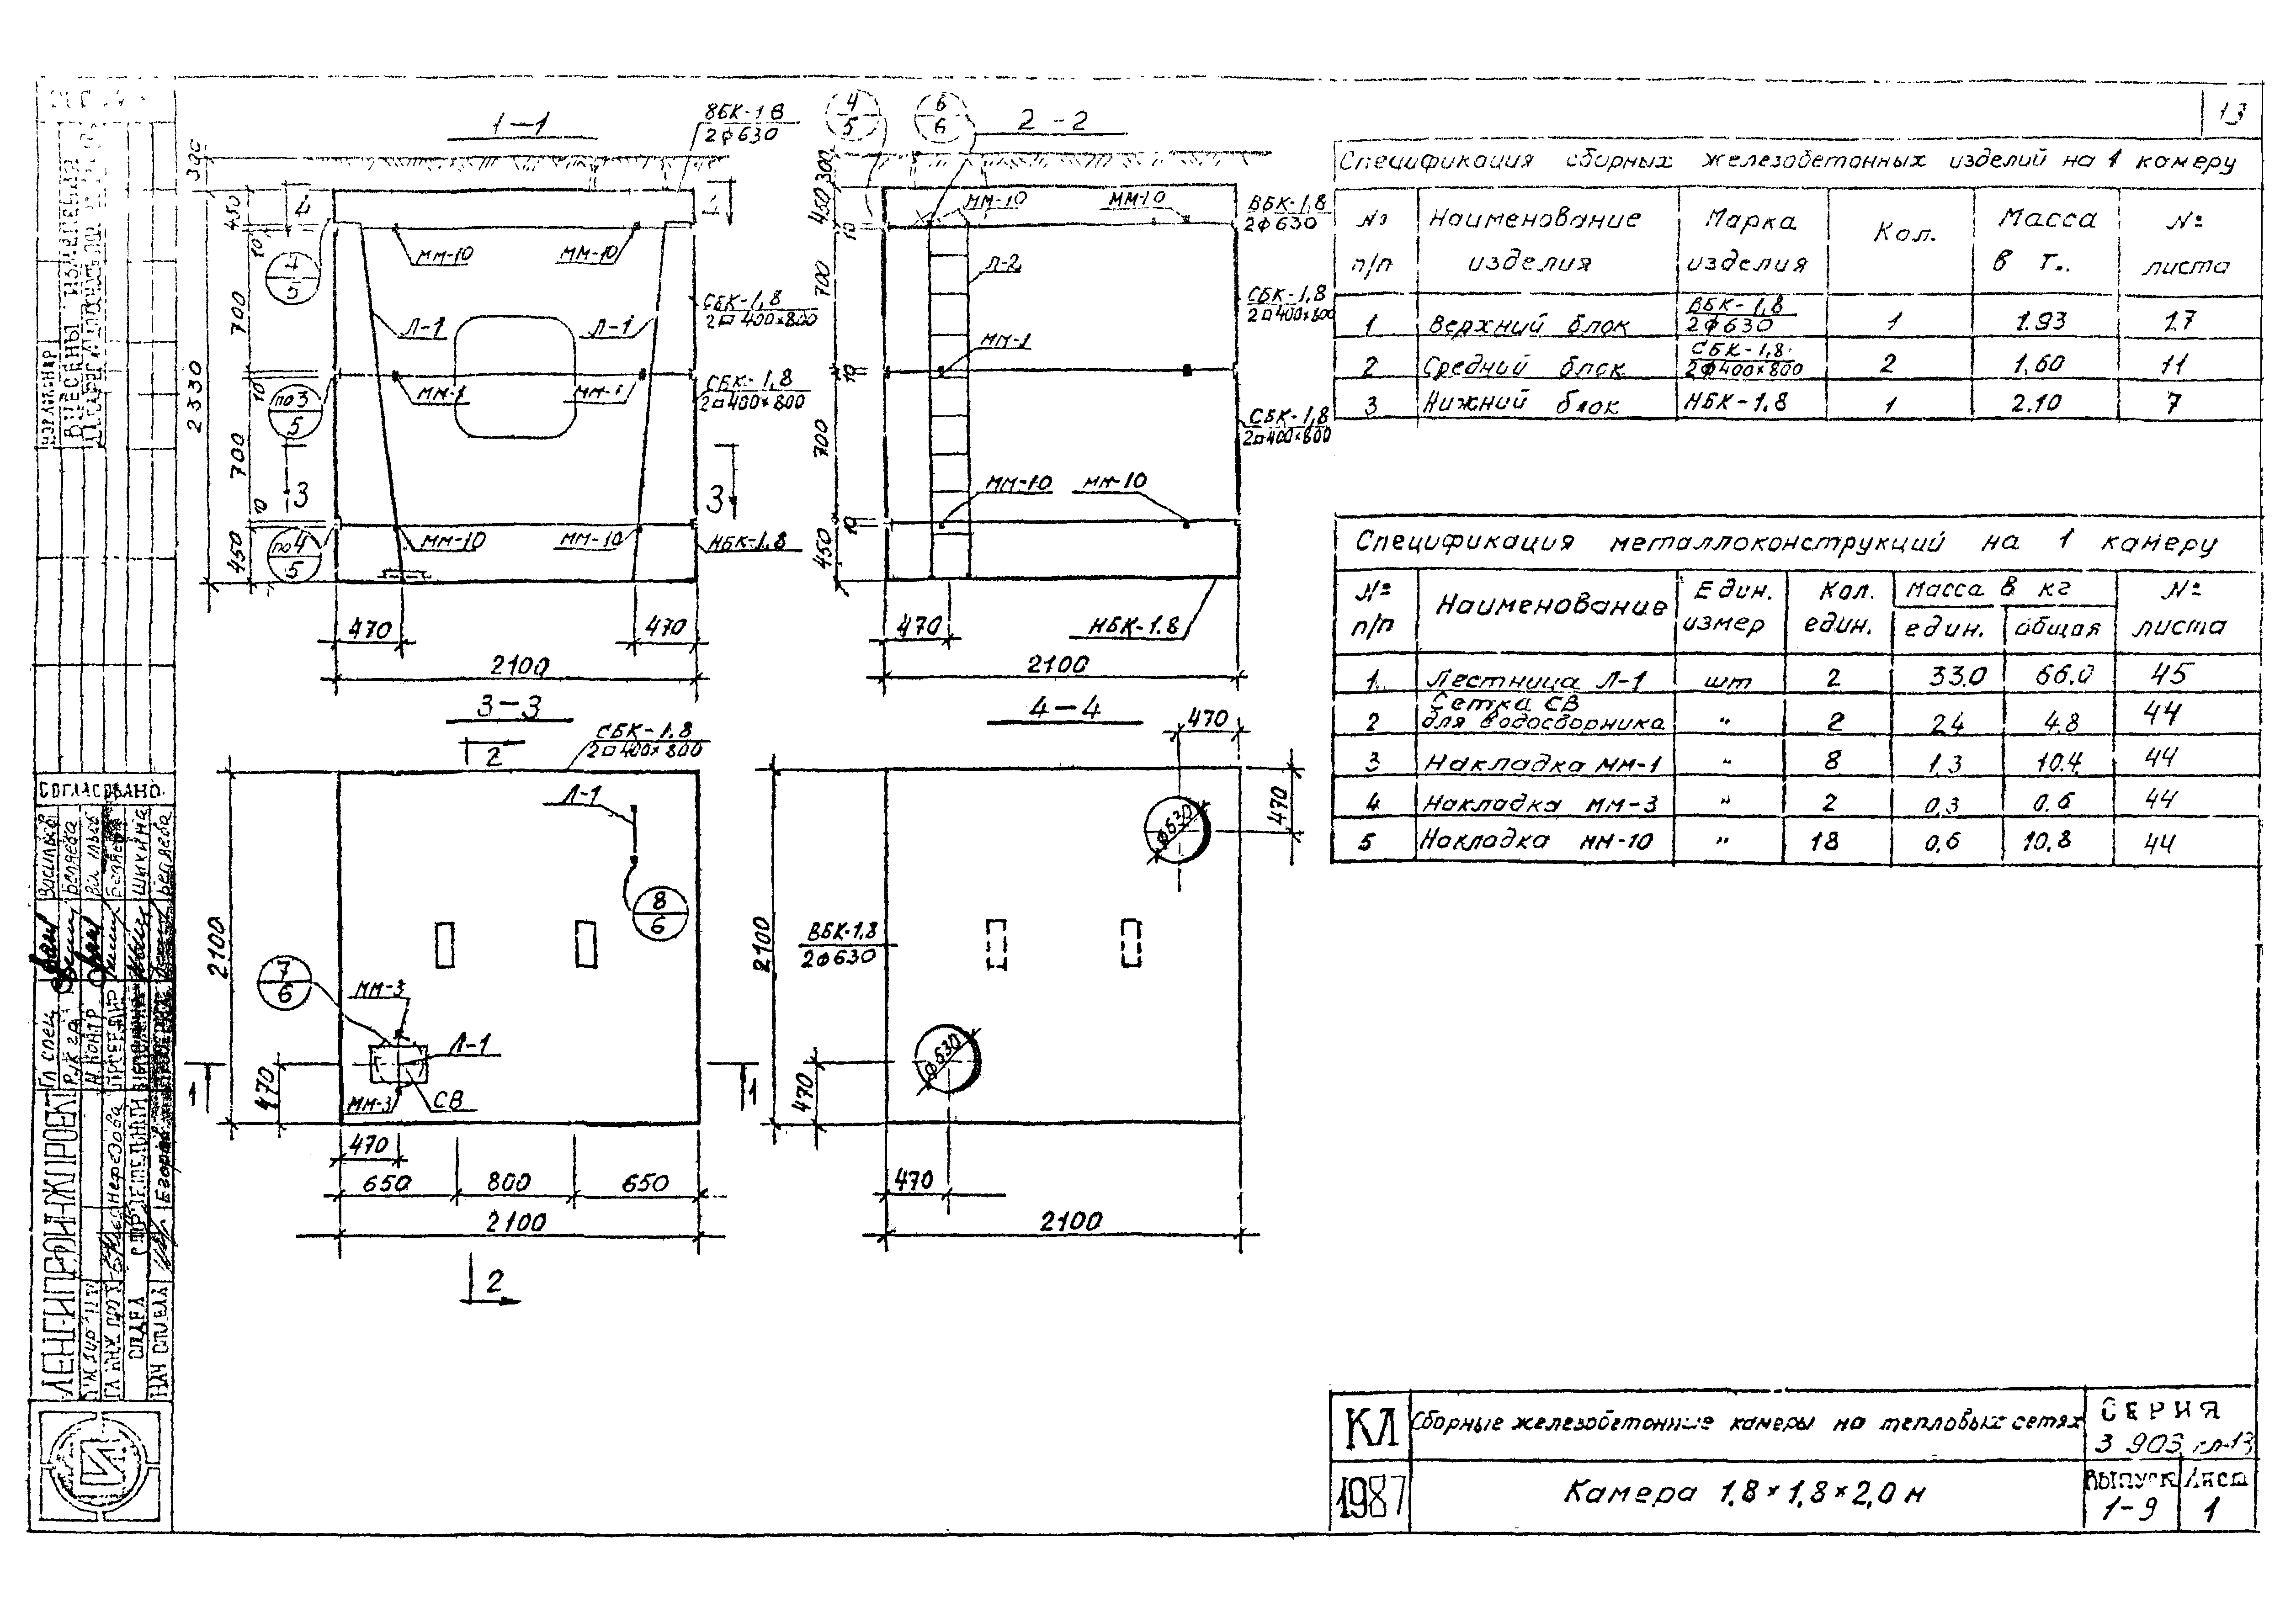 13
1-1
ВБК-1.8
2ф630
300
450
4
1
10
ММ-10
ММ-10
4
5
700
СБК-1,8
2□400×800
Л-1
Л-1
2330
10
ММ-1
ММ-1
СБК-1,8
2□400×800
по3
5
700
3
3
10
по4
5
ММ-10
ММ-10
НБК-1.8
450
470
470
2100
4
5
6
6
2-2
300
450
10
ММ-10
ММ-10
ВБК-1,8
2ф630
Л-2
700
СБК-1,8
2□400×800
ММ-1
10
СБК-1,8
2□400×800
700
ММ-10
ММ-10
10
450
470
НБК-1.8
2100
3-3
2
СБК-1.8
2□400×800
Л-1
8
6
2100
7
6
ММ-3
Л-1
1
470
ММ-3
СВ
1
470
650
800
650
2100
2
4-4
470
ф630
470
2100
ВБК-1,8
2ф630
ф630
470
470
2100
Спецификация сборных железобетонных изделий на 1 камеру
№ Наименование Марка Кол. Масса №
п/п изделия изделия в т. листа
1 Верхний блок ВБК-1,8 2ф630 1 1.93 17
2 Средний блок СБК-1,8 2ф400×800 2 1,60 11
3 Нижний блок НБК-1.8 1 2.10 7
Спецификация металлоконструкций на 1 камеру
№ Наименование Един. Кол. Масса в кг №
п/п измер един. един. общая листа
1. Лестница Л-1 шт 2 33.0 66.0 45
2 Сетка СВ для водосборника " 2 2.4 4.8 44
3 Накладка ММ-1 " 8 1,3 10.4 44
4 Накладка ММ-3 " 2 0,3 0.6 44
5 Накладка ММ-10 " 18 0,6 10,8 44
СОГЛАСОВАНО
Васильев
Беляева
Шикина
Гл спец
Рук гр
Н контр
ЛЕНГИПРОИНЖПРОЕКТ
ОТДЕЛ
НАЧ ОТДЕЛА
КЛ
1987
Сборные железобетонные камеры на тепловых сетях
Камера 1,8×1,8×2,0 м
СЕРИЯ
3 903 кл-13
Выпуск
1-9
Лист
1